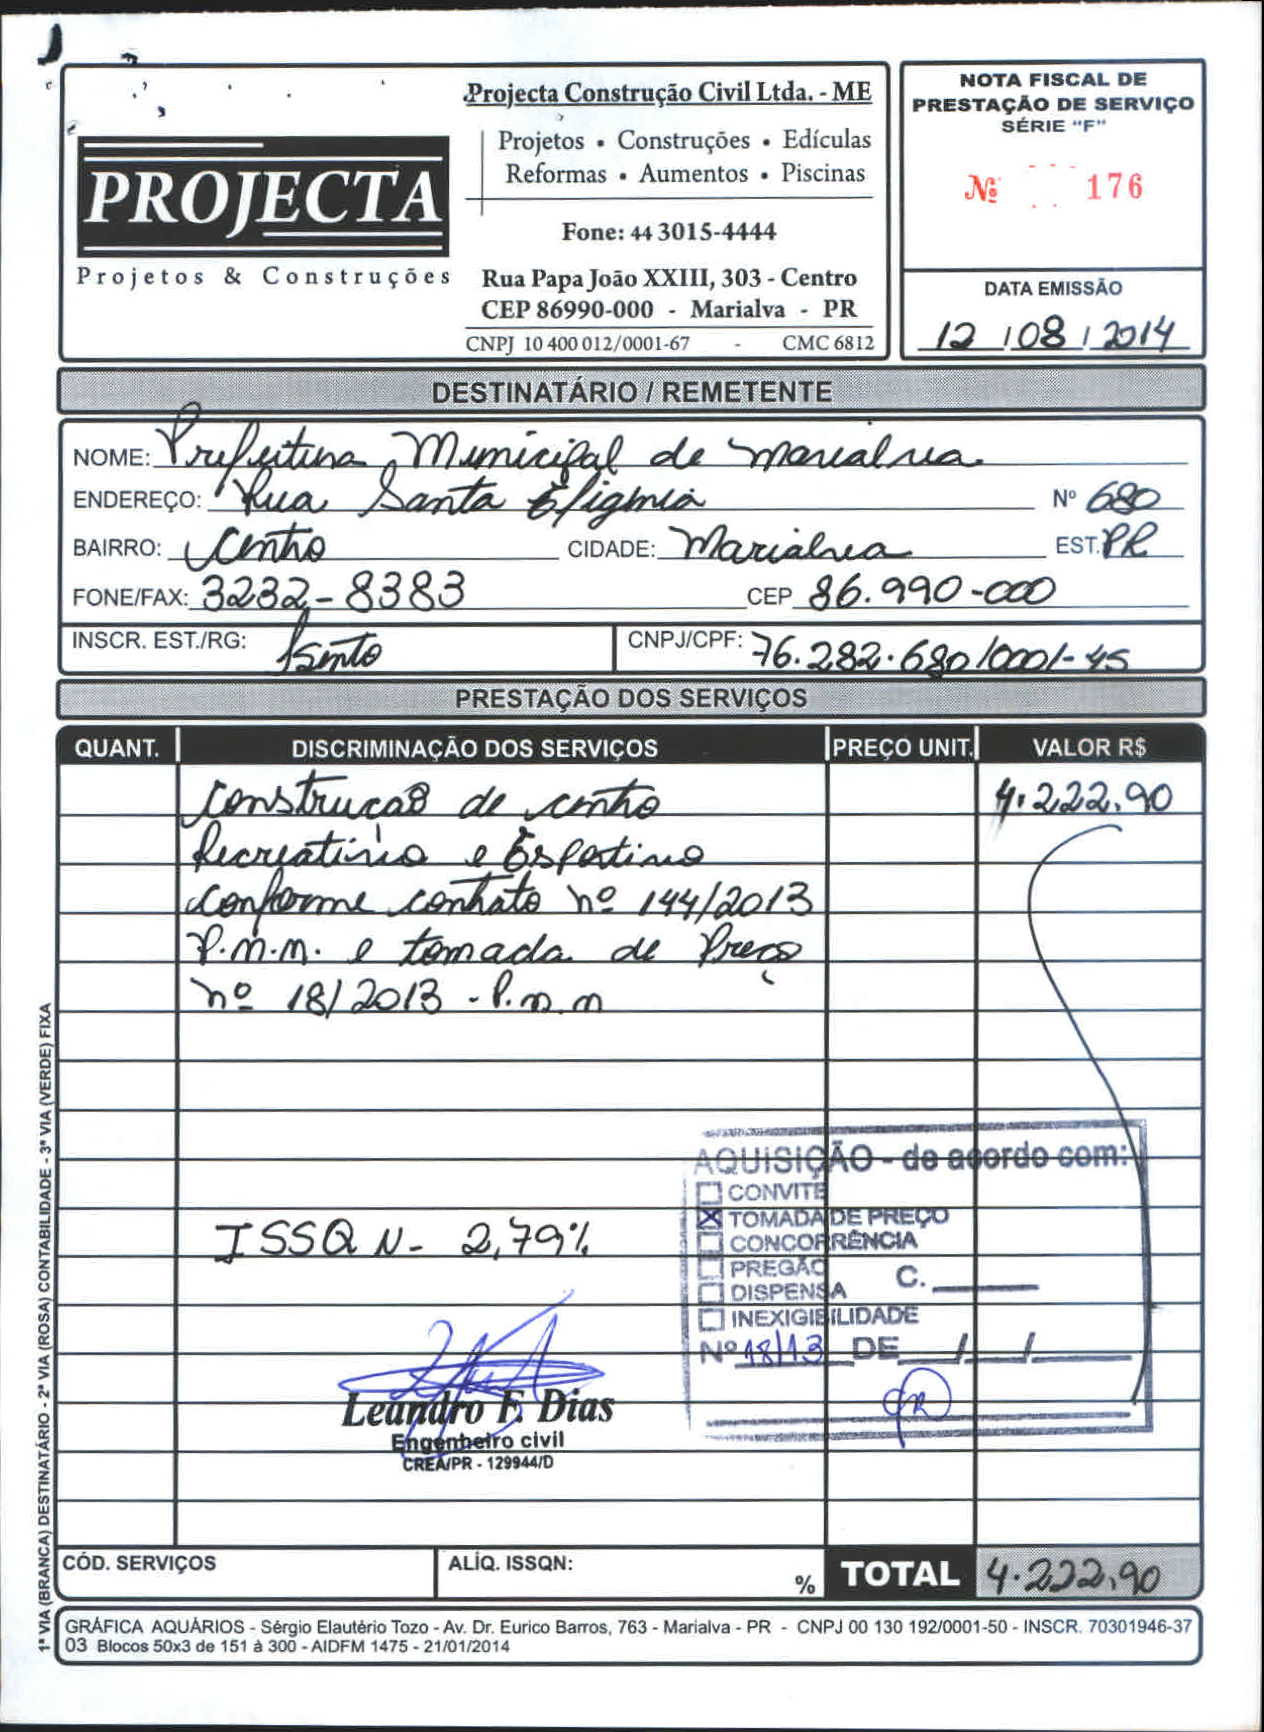 Projecta Construção Civil Ltda. - ME
Projetos • Construções • Edículas
Reformas • Aumentos • Piscinas
PROJECTA
Projetos & Construções
Fone: 44 3015-4444
Rua Papa João XXIII, 303 - Centro
CEP 86990-000 - Marialva - PR
CNPJ 10 400 012/0001-67 - CMC 6812
NOTA FISCAL DE
PRESTAÇÃO DE SERVIÇO
SÉRIE "F"
Nº 176
DATA EMISSÃO
12 / 08 / 2014
DESTINATÁRIO / REMETENTE
NOME: Prefeitura Municipal de Marialva
ENDEREÇO: Rua Santa Efigênia Nº 680
BAIRRO: Centro CIDADE: Marialva EST. PR
FONE/FAX: 3232-8383 CEP 86.990-000
INSCR. EST./RG: Isento CNPJ/CPF: 76.282.680/0001-45
PRESTAÇÃO DOS SERVIÇOS
QUANT. DISCRIMINAÇÃO DOS SERVIÇOS PREÇO UNIT. VALOR R$
Construcao de centro 4.222,90
Recreativo e Esportivo
conforme contrato nº 144/2013
P.M.M. e tomada de Preço
nº 18/2013 - P.M.M
AQUISIÇÃO - de acordo com:
CONVITE
TOMADA DE PREÇO
CONCORRÊNCIA
PREGÃO
DISPENSA C.
INEXIGIBILIDADE
Nº 18/13 DE / /
ISSQN - 2,79%
Leandro F. Dias
Engenheiro civil
CREA/PR - 129944/D
CÓD. SERVIÇOS ALÍQ. ISSQN: % TOTAL 4.222,90
GRÁFICA AQUÁRIOS - Sérgio Elautério Tozo - Av. Dr. Eurico Barros, 763 - Marialva - PR - CNPJ 00 130 192/0001-50 - INSCR. 70301946-37
03 Blocos 50x3 de 151 à 300 - AIDFM 1475 - 21/01/2014
1ª VIA (BRANCA) DESTINATÁRIO - 2ª VIA (ROSA) CONTABILIDADE - 3ª VIA (VERDE) FIXA